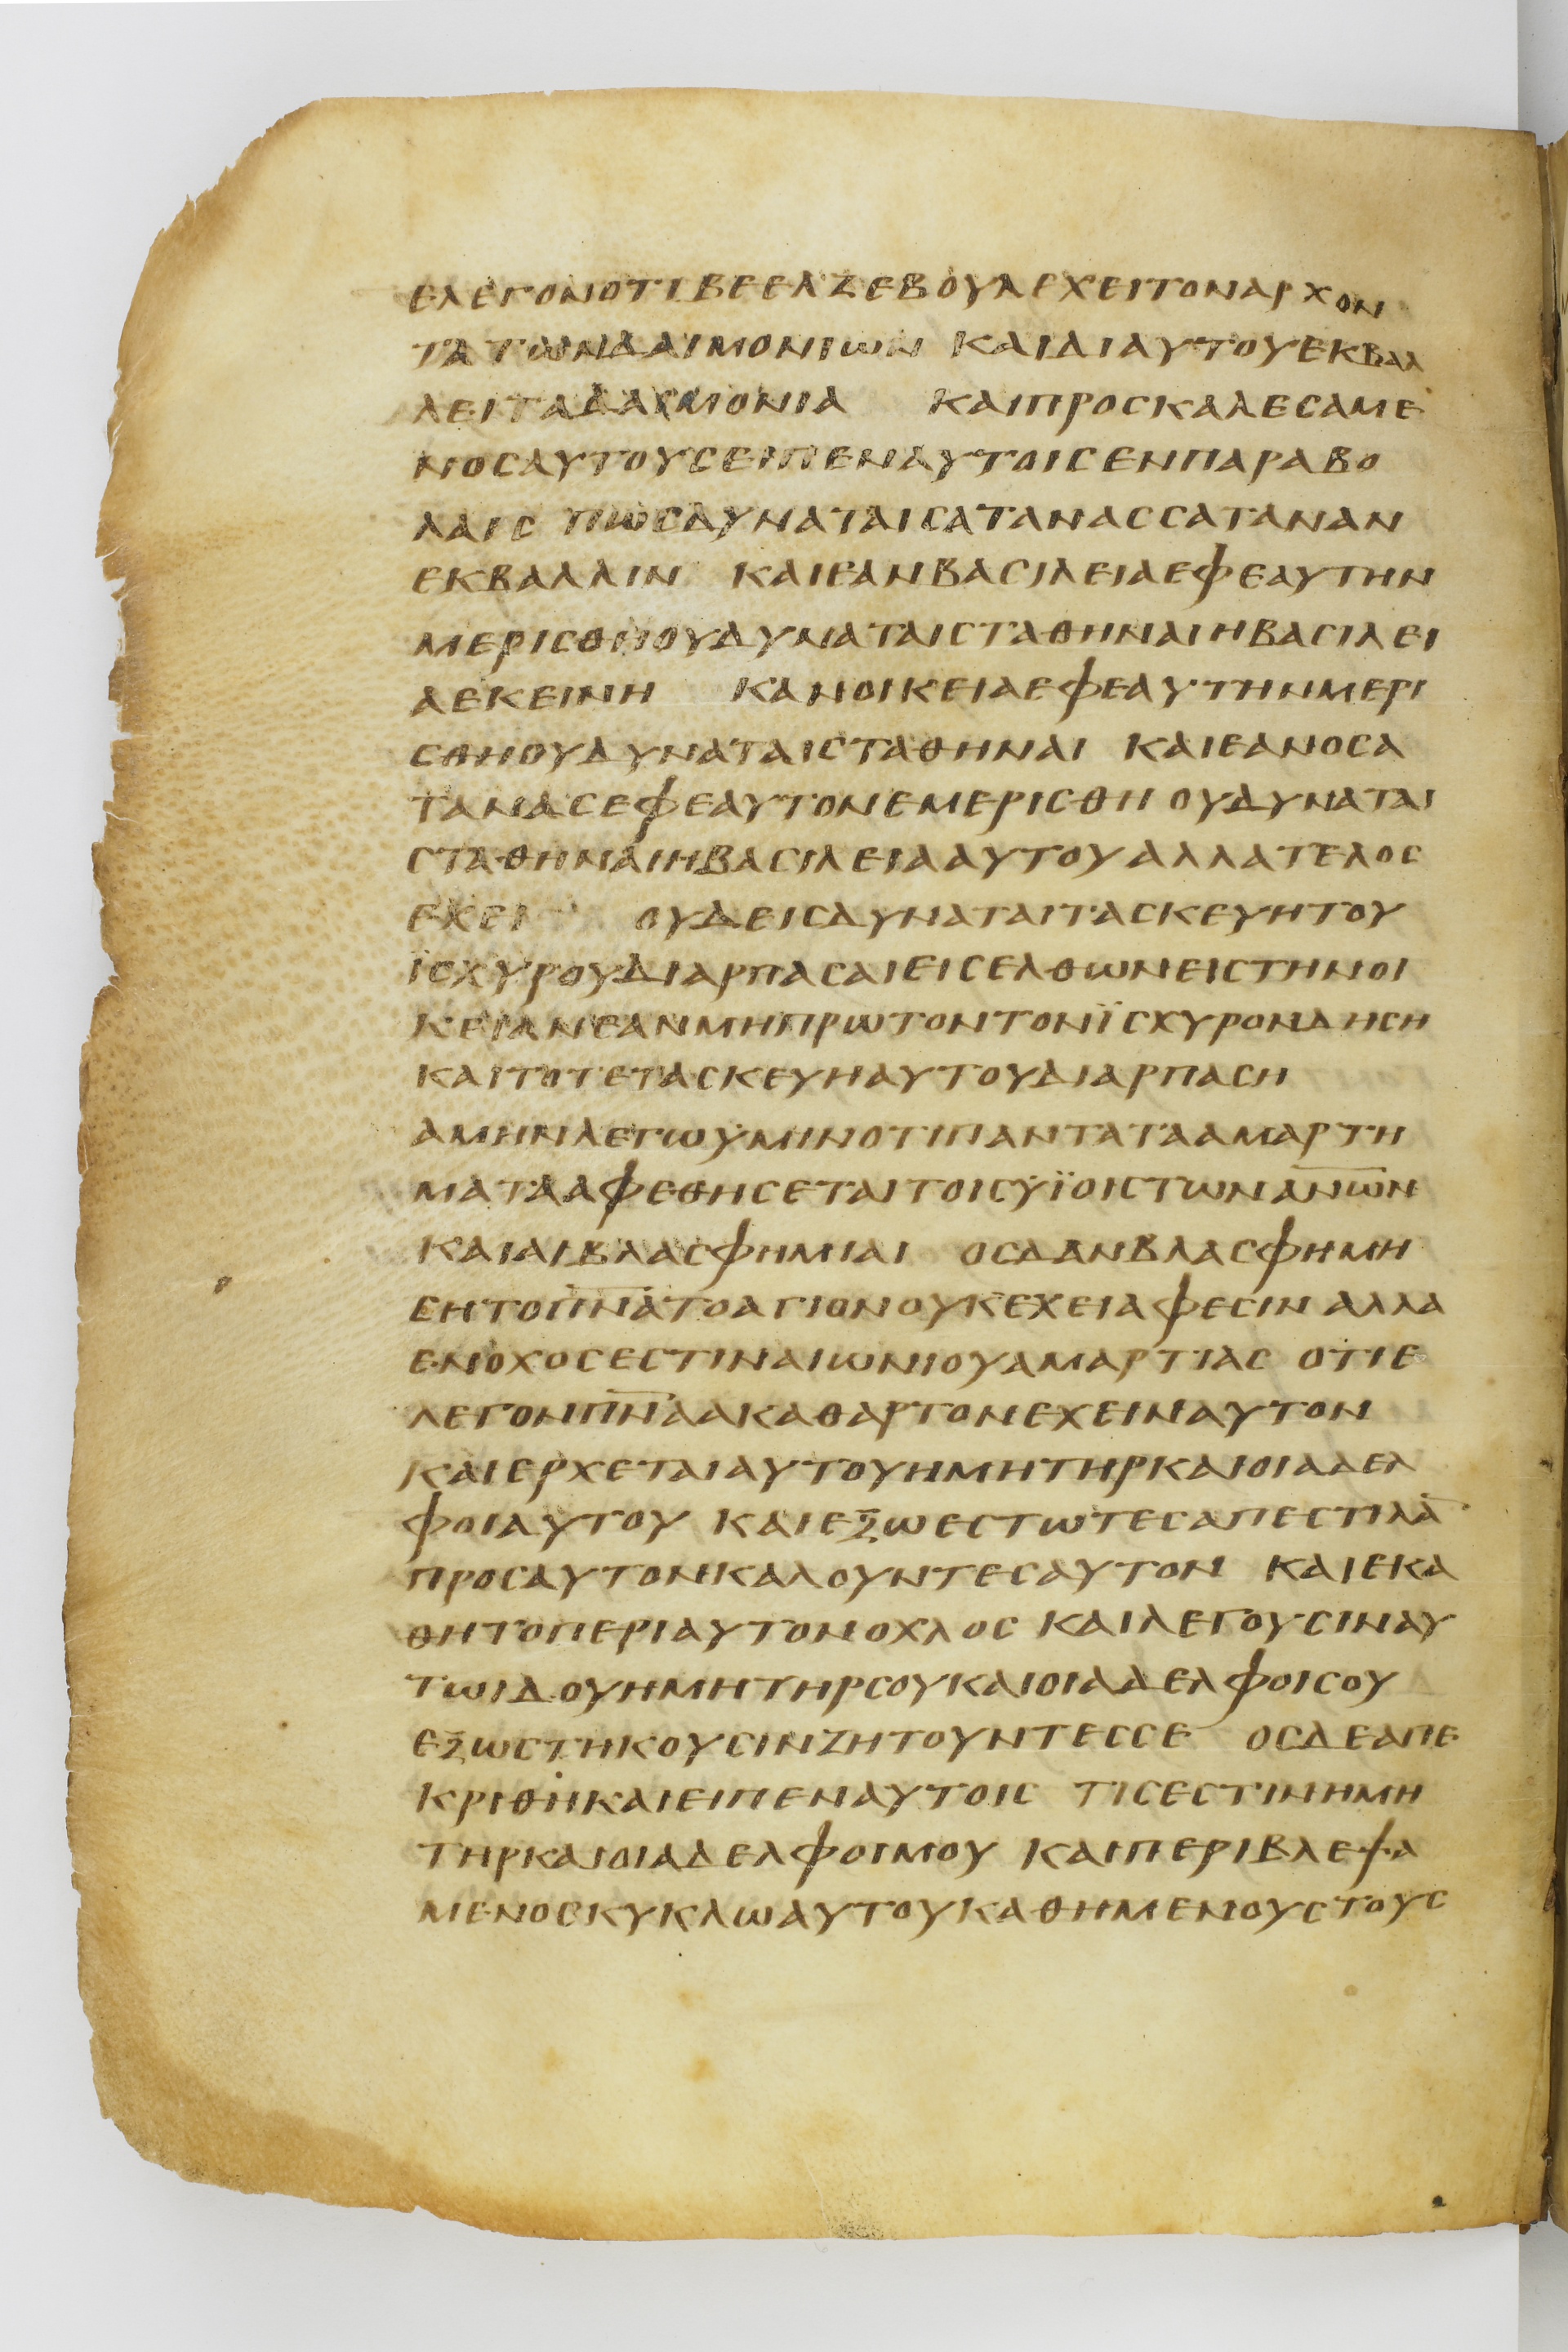 ελεγονοτιβεελζεβουλεχειτοναρχον
τατωνδαιμονιων καιδιαυτουεκβαλ
λειταδαιμονια καιπροσκαλεσαμε
νοσαυτουσειπεναυτοισενπαραβο
λαισ πωσδυναταισατανασσαταναν
εκβαλλιν καιεανβασιλειαεφεαυτην
μερισθηουδυναταισταθηναιηβασιλει
αεκεινη κανοικειαεφεαυτηνμερι
σθηουδυναταισταθηναι καιεανοσα
τανασεφεαυτονεμερισθη ουδυναται
σταθηναιηβασιλειααυτουαλλατελοσ
εχει ουδεισδυναταιτασκευητου
ϊσχυρουδιαρπασαιεισελθωνειστηνοι
κειανεανμηπρωτοντονϊσχυρονδηση
καιτοτετασκευηαυτουδιαρπαση
αμηνλεγωϋμινοτιπαντατααμαρτη
ματααφεθησεταιτοισϋϊοιστωνα̅ν̅ω̅ν̅
καιαιβλασφημιαι οσδανβλασφημη
σητοπ̅ν̅α̅τοαγιονουκεχειαφεσιν αλλα
ενοχοσεστιναιωνιουαμαρτιασ οτιε
λεγονπ̅ν̅α̅ακαθαρτονεχειναυτον
καιερχεταιαυτουημητηρκαιοιαδελ
φοιαυτου καιεξωεστωτεσαπεστιλα̅
προσαυτονκαλουντεσαυτον καιεκα
θητοπεριαυτονοχλοσ καιλεγουσιναυ
τωιδουημητηρσουκαιοιαδελφοισου
εξωστηκουσινζητουντεσσε οσδεαπε
κριθηκαιειπεναυτοισ τισεστινημη
τηρκαιοιαδελφοιμου καιπεριβλεψα
μενοσκυκλωαυτουκαθημενουστουσ